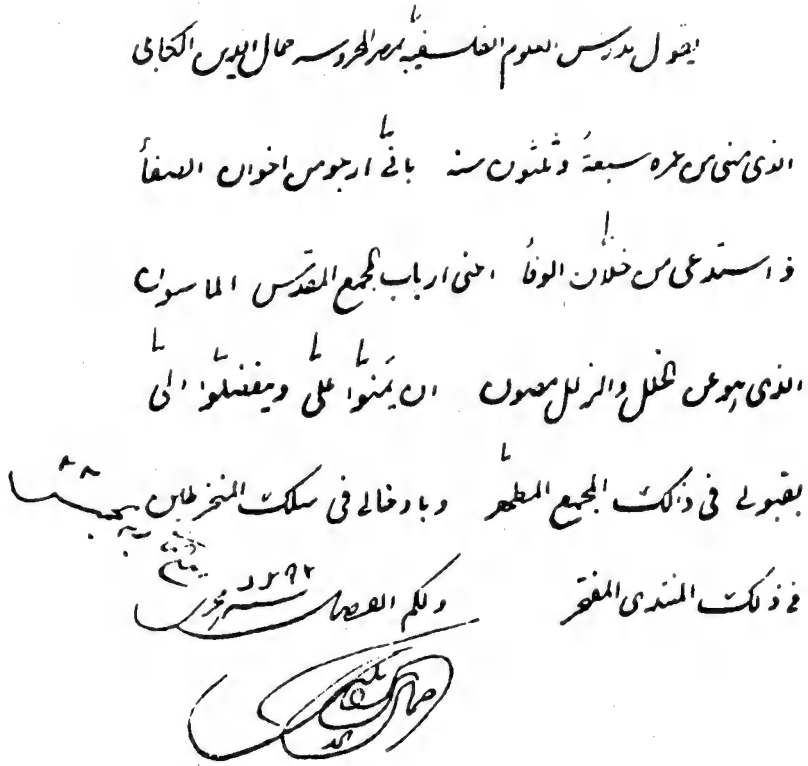 يقول مدرس العلوم الفلسفية بمصر المحروسه جمال الدين الكابلى
الذى مضى من عمره سبعة وثلثون سنه بانى ارجو من اخوان الصفا
و استدعى من خلان الوفا اعنى ارباب المجمع المقدس الماسون
الذى هو عن الخلل والزلل مصون ان يمنوا على ويتفضلوا الى
بقبولى فى ذالك المجمع المطهر و بادخالى فى سلك المنخرطين
فى ذلك المنتدى المفتخر ولكم الفضل
١٢٩٢
جمال الدين